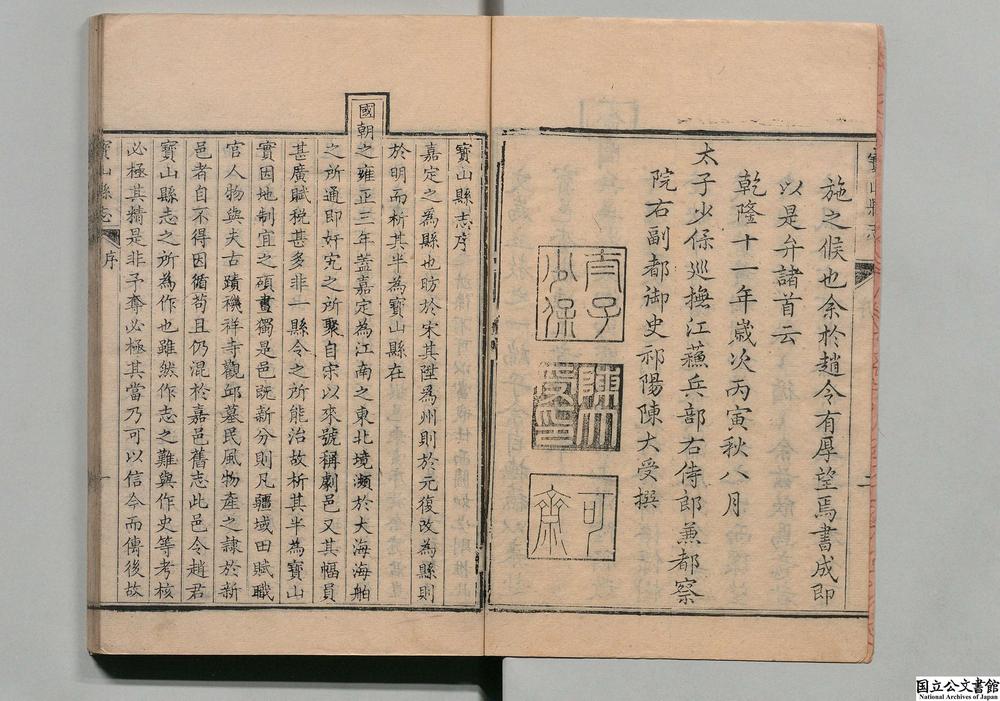 寶山縣志
施之候也余於趙令有厚望焉書成即
以是弁諸首云
乾隆十一年歲次丙寅秋八月
太子少保巡撫江蘓兵部右侍郎兼都察
院右副都御史祁陽陳大受撰
太子
少保
陳大
受印
可
齋
寶山縣志序
嘉定之為縣也昉於宋其陞爲州則於元復改為縣則
於明而析其半為寶山縣在
國朝之雍正三年蓋嘉定為江南之東北境瀕於大海海舶
之所通即奸宄之所聚自宋以來號稱劇邑又其幅員
甚廣賦稅甚多非一縣令之所能治故析其半為寶山
實因地制宜之碩畫獨是邑既新分則凡疆域田賦職
官人物與夫古蹟禨祥寺觀邱墓民風物產之隸於新
邑者自不得因循苟且仍混於嘉邑舊志此邑令趙君
寶山縣志之所為作也雖然作志之難與作史等考核
必極其精是非予奪必極其當乃可以信今而傳後故
寶山縣志
序
一
国立公文書館
National Archives of Japan